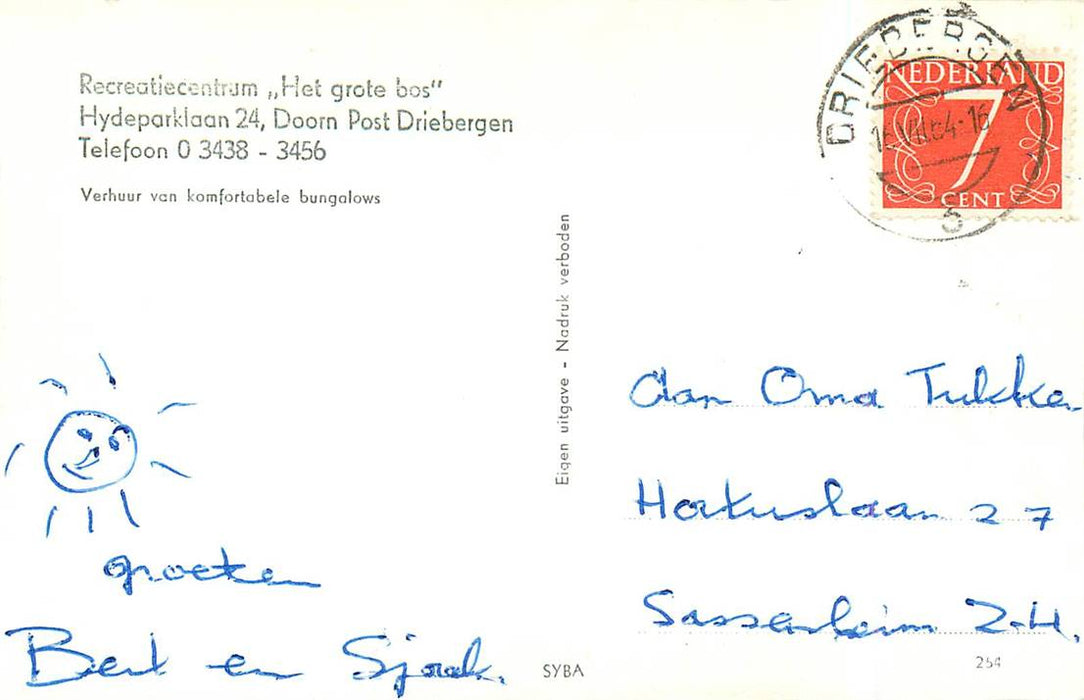 Recreatiecentrum „Het grote bos”
Hydeparklaan 24, Doorn Post Driebergen
Telefoon 0 3438 - 3456
Verhuur van komfortabele bungalows
groeten
Bert en Sjaak.
Eigen uitgave - Nadruk verboden
SYBA
DRIEBERGEN
16 VII 64-16
5
NEDERLAND
7
CENT
Aan Oma Tukker
Hortuslaan 27
Sassenheim Z-H.
254